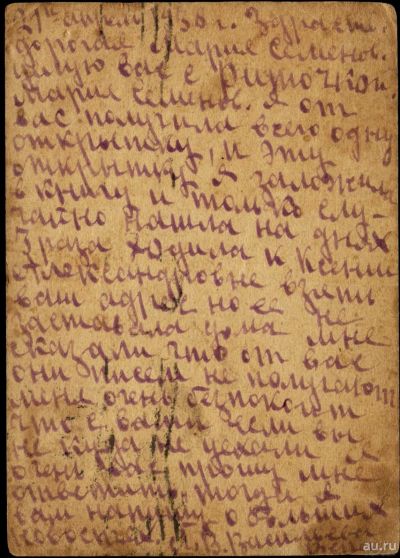 27го апреля 1930 г. Здравст.
дорогая Мария Семенов.
целую вас с Риточкой.
Мария Семенов. я от
вас получила всего одну
открытку, и эту
открытку я заложила
в книгу и только слу-
чайно нашла на днях
3 раза ходила к Ксении
Александровне взять
ваш адрес но ее не
заставала дома мне
сказали что от вас
они писем не получают
меня очень безпокоит
что с вами если вы
не куда не уехали
очень вас прошу мне
ответить, тогда я
вам напишу о больших
новостях. В. Василье
au.ru